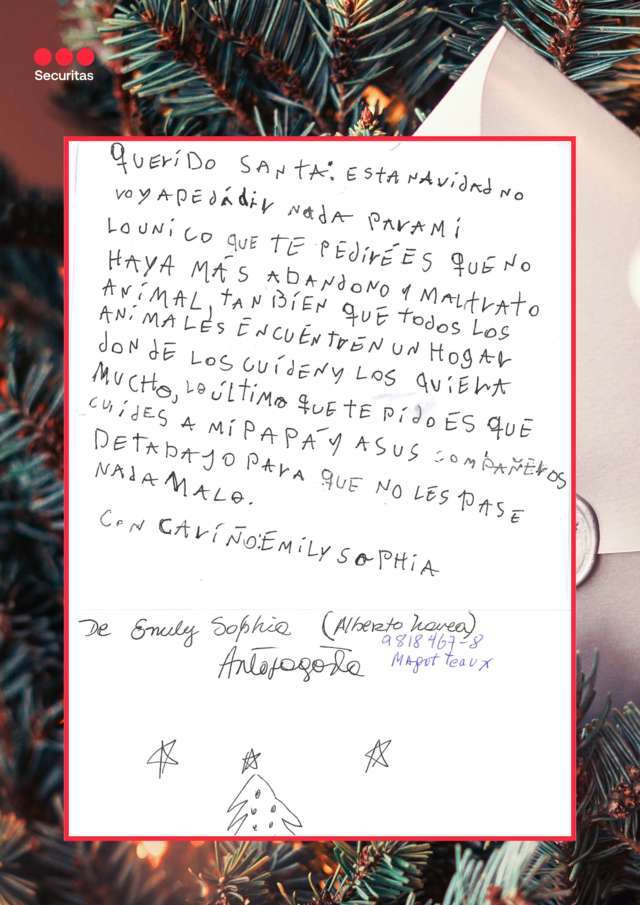 Securitas
QUERIDO SANTA: ESTA NAVIDAD NO
VOY A PEDÁDIR NADA PARA MÍ
LO UNICO QUE TE PEDIRÉ ES QUE NO
HAYA MÁS ABANDONO Y MALTRATO
ANIMAL, TANBÍEN QUE TODOS LOS
ANIMALES ENCUENTREN UN HOGAR
DONDE LOS CUÍDEN Y LOS QUIERA
MUCHO, LO ÚLTIMO QUE TE PIDO ES QUE
CUÍDES A MI PAPÁ Y A SUS COMPAÑEROS
DETABAJO PARA QUE NO LES PASE
NADA MALO.
CON CARÍÑO: EMILY SOPHIA
De Emily Sophia (Alberto
9818467-8
Antofagasta
Magotteaux